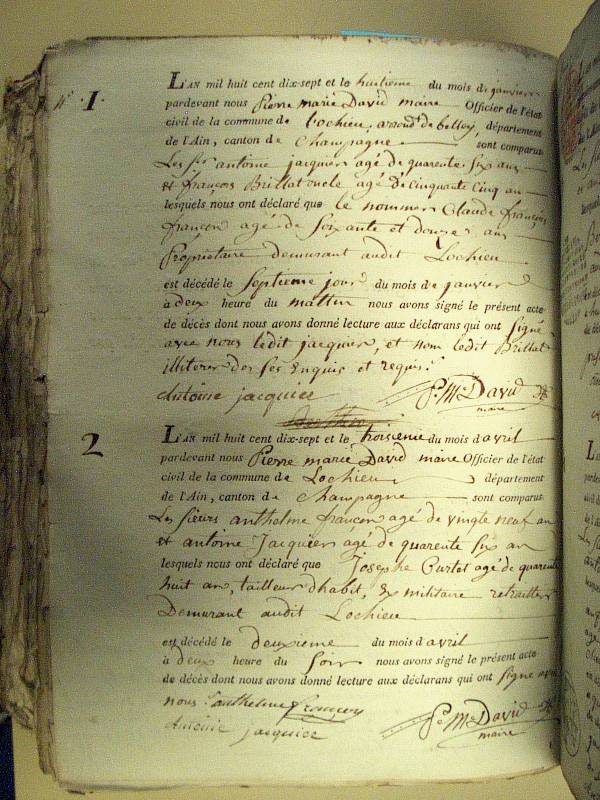 N.º 1.
L'AN mil huit cent dix-sept et le huitieme du mois de janvier
pardevant nous Pierre marie David maire Officier de l'état
civil de la commune de Lochieu, arrond.t de belley, département
de l'Ain, canton de Champagne sont comparus
Les S.rs antoine jacquier agé de quarente six ans
et françois Brillat oncle agé de Cinquante Cinq an
lesquels nous ont déclaré que le nommer Claude françois
françon agé de Soixante et douze ans
Propriétaire demeurant audit Lochieu
est décédé le Septieme jour du mois de janvier
à deux heure du mattin nous avons signé le présent acte
de décès dont nous avons donné lecture aux déclarans qui ont signé
avec nous ledit jacquier, et non ledit Brillat
illiterer de ses enquis et requis.
Antoine jacquier P.re M.ie David
maire
2
L'AN mil huit cent dix-sept et le troisieme du mois d avril
pardevant nous Pierre marie David maire Officier de l'état
civil de la commune de Lochieu département
de l'Ain, canton de Champagne sont comparus
Les sieurs anthelme françon agé de vingte neuf an
et antoine Jacquier agé de quarente six an
lesquels nous ont déclaré que Josephe Curtet agé de quarente
huit an, tailleur d'habit, Ex militaire retraitter
Demeurant audit Lochieu
est décédé le deuxieme du mois d avril
à deux heure du Soir nous avons signé le présent acte
de décès dont nous avons donné lecture aux déclarans qui ont signé avec
nous. anthelme françon
Antoine jacquier P.re M.ie David
maire